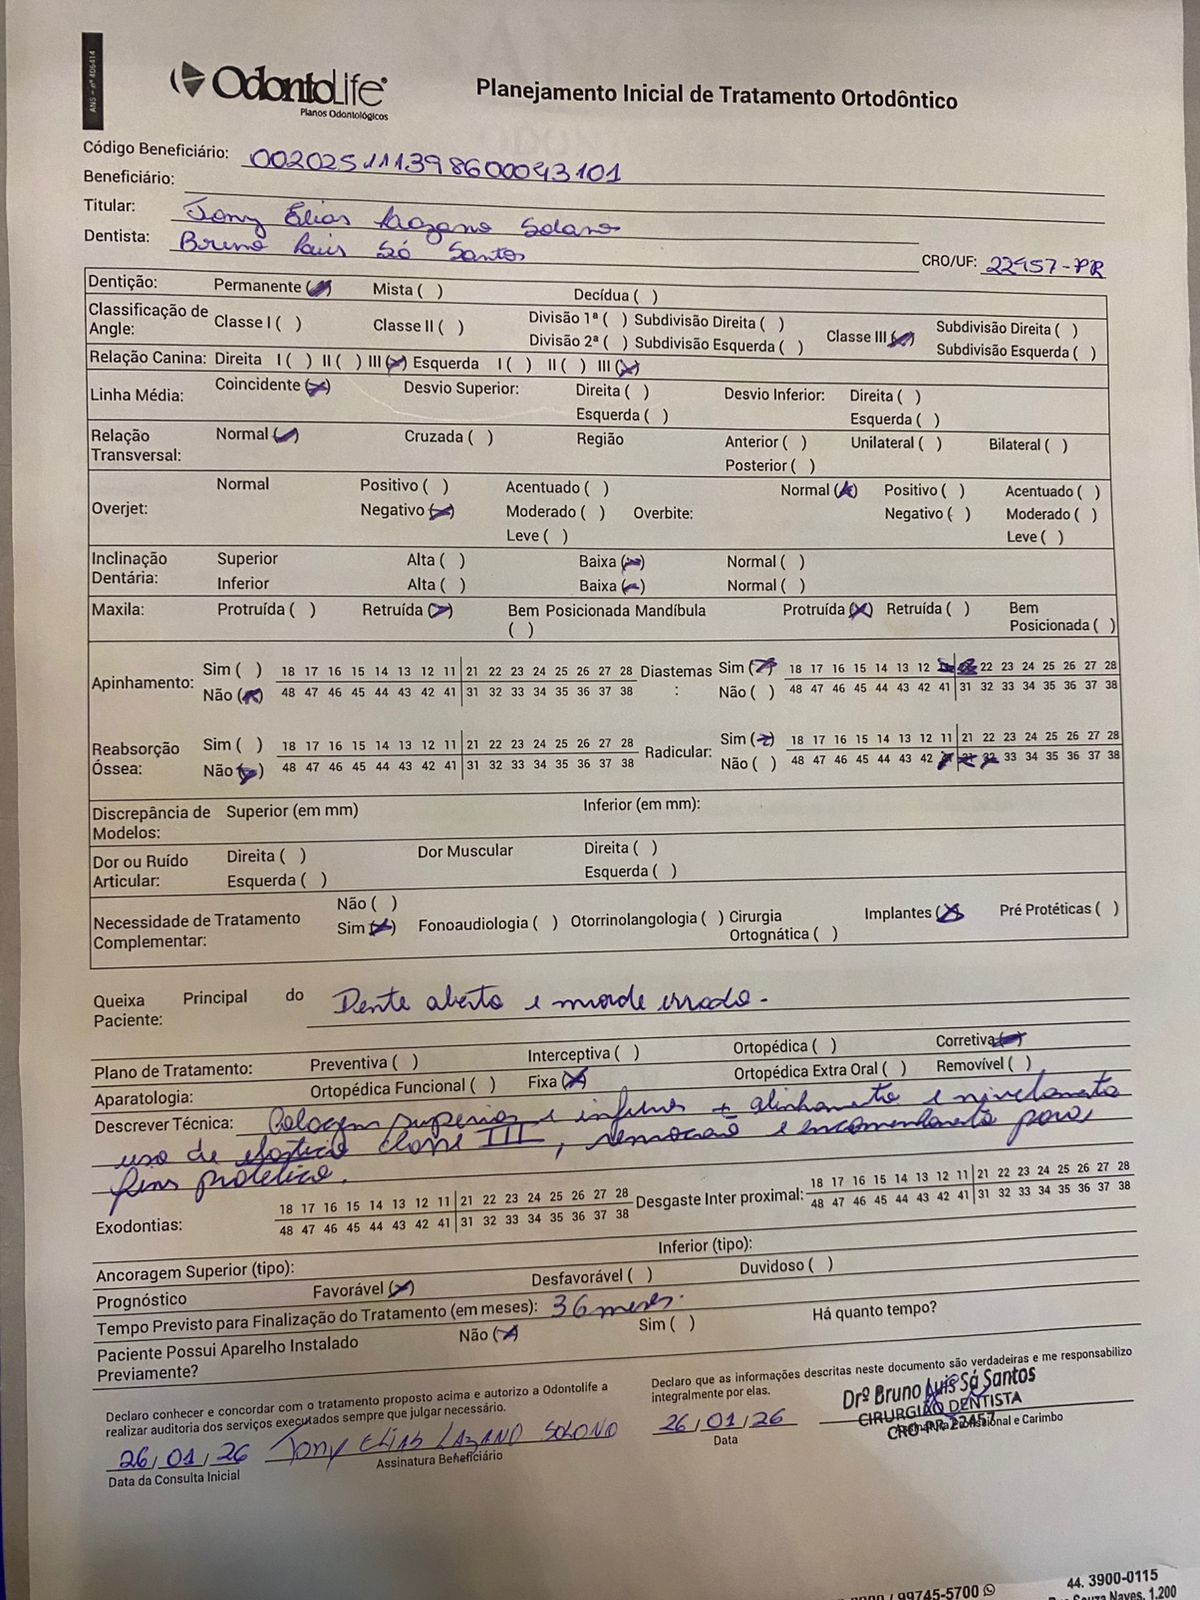 ANS - nº 406414
OdontoLife®
Planos Odontológicos
Planejamento Inicial de Tratamento Ortodôntico
Código Beneficiário: 002025111398600043101
Beneficiário:
Titular: Tony Elias Lozano Solano
Dentista: Bruno Luis Sá Santos CRO/UF: 22457-PR
Dentição: Permanente (x) Mista ( ) Decídua ( )
Classificação de Angle: Classe I ( ) Classe II ( ) Divisão 1ª ( ) Subdivisão Direita ( ) Classe III (x) Subdivisão Direita ( )
Divisão 2ª ( ) Subdivisão Esquerda ( ) Subdivisão Esquerda ( )
Relação Canina: Direita I ( ) II ( ) III (x) Esquerda I ( ) II ( ) III (x)
Linha Média: Coincidente (x) Desvio Superior: Direita ( ) Desvio Inferior: Direita ( )
Esquerda ( ) Esquerda ( )
Relação Transversal: Normal (x) Cruzada ( ) Região Anterior ( ) Unilateral ( ) Bilateral ( )
Posterior ( )
Normal Positivo ( ) Acentuado ( ) Normal (x) Positivo ( ) Acentuado ( )
Overjet: Negativo (x) Moderado ( ) Overbite: Negativo ( ) Moderado ( )
Leve ( ) Leve ( )
Inclinação Dentária: Superior Alta ( ) Baixa (x) Normal ( )
Inferior Alta ( ) Baixa (x) Normal ( )
Maxila: Protruída ( ) Retruída (x) Bem Posicionada ( ) Mandíbula Protruída (x) Retruída ( ) Bem Posicionada ( )
Apinhamento: Sim ( ) 18 17 16 15 14 13 12 11 21 22 23 24 25 26 27 28 Diastemas: Sim (x) 18 17 16 15 14 13 12 22 23 24 25 26 27 28
Não (x) 48 47 46 45 44 43 42 41 31 32 33 34 35 36 37 38 Não ( ) 48 47 46 45 44 43 42 41 31 32 33 34 35 36 37 38
Reabsorção Óssea: Sim ( ) 18 17 16 15 14 13 12 11 21 22 23 24 25 26 27 28 Radicular: Sim (x) 18 17 16 15 14 13 12 11 21 22 23 24 25 26 27 28
Não (x) 48 47 46 45 44 43 42 41 31 32 33 34 35 36 37 38 Não ( ) 48 47 46 45 44 43 42 33 34 35 36 37 38
Discrepância de Modelos: Superior (em mm) Inferior (em mm):
Dor ou Ruído Articular: Direita ( ) Dor Muscular Direita ( )
Esquerda ( ) Esquerda ( )
Necessidade de Tratamento Complementar: Não ( )
Sim (x) Fonoaudiologia ( ) Otorrinolangologia ( ) Cirurgia Ortognática ( ) Implantes (x) Pré Protéticas ( )
Queixa Principal do Paciente: Dente aberto e morde errado.
Plano de Tratamento: Preventiva ( ) Interceptiva ( ) Ortopédica ( ) Corretiva (x)
Aparatologia: Ortopédica Funcional ( ) Fixa (x) Ortopédica Extra Oral ( ) Removível ( )
Descrever Técnica: Colagem superior e inferior + alinhamento e nivelamento
uso de elástico classe III, remoção e encaminhamento para
fins protético.
Exodontias: 18 17 16 15 14 13 12 11 21 22 23 24 25 26 27 28 Desgaste Inter proximal: 18 17 16 15 14 13 12 11 21 22 23 24 25 26 27 28
48 47 46 45 44 43 42 41 31 32 33 34 35 36 37 38 48 47 46 45 44 43 42 41 31 32 33 34 35 36 37 38
Ancoragem Superior (tipo): Inferior (tipo):
Prognóstico Favorável (x) Desfavorável ( ) Duvidoso ( )
Tempo Previsto para Finalização do Tratamento (em meses): 36 meses.
Paciente Possui Aparelho Instalado Previamente? Não (x) Sim ( ) Há quanto tempo?
Declaro conhecer e concordar com o tratamento proposto acima e autorizo a Odontolife a
realizar auditoria dos serviços executados sempre que julgar necessário.
Declaro que as informações descritas neste documento são verdadeiras e me responsabilizo
integralmente por elas.
26/01/26 Tony Elias Lazano Solono
Data da Consulta Inicial Assinatura Beneficiário
26/01/26
Data
Drº Bruno Luis Sá Santos
CIRURGIÃO DENTISTA
CRO-PR 22457
Profissional e Carimbo
99745-5700
44. 3900-0115
Souza Naves, 1.200